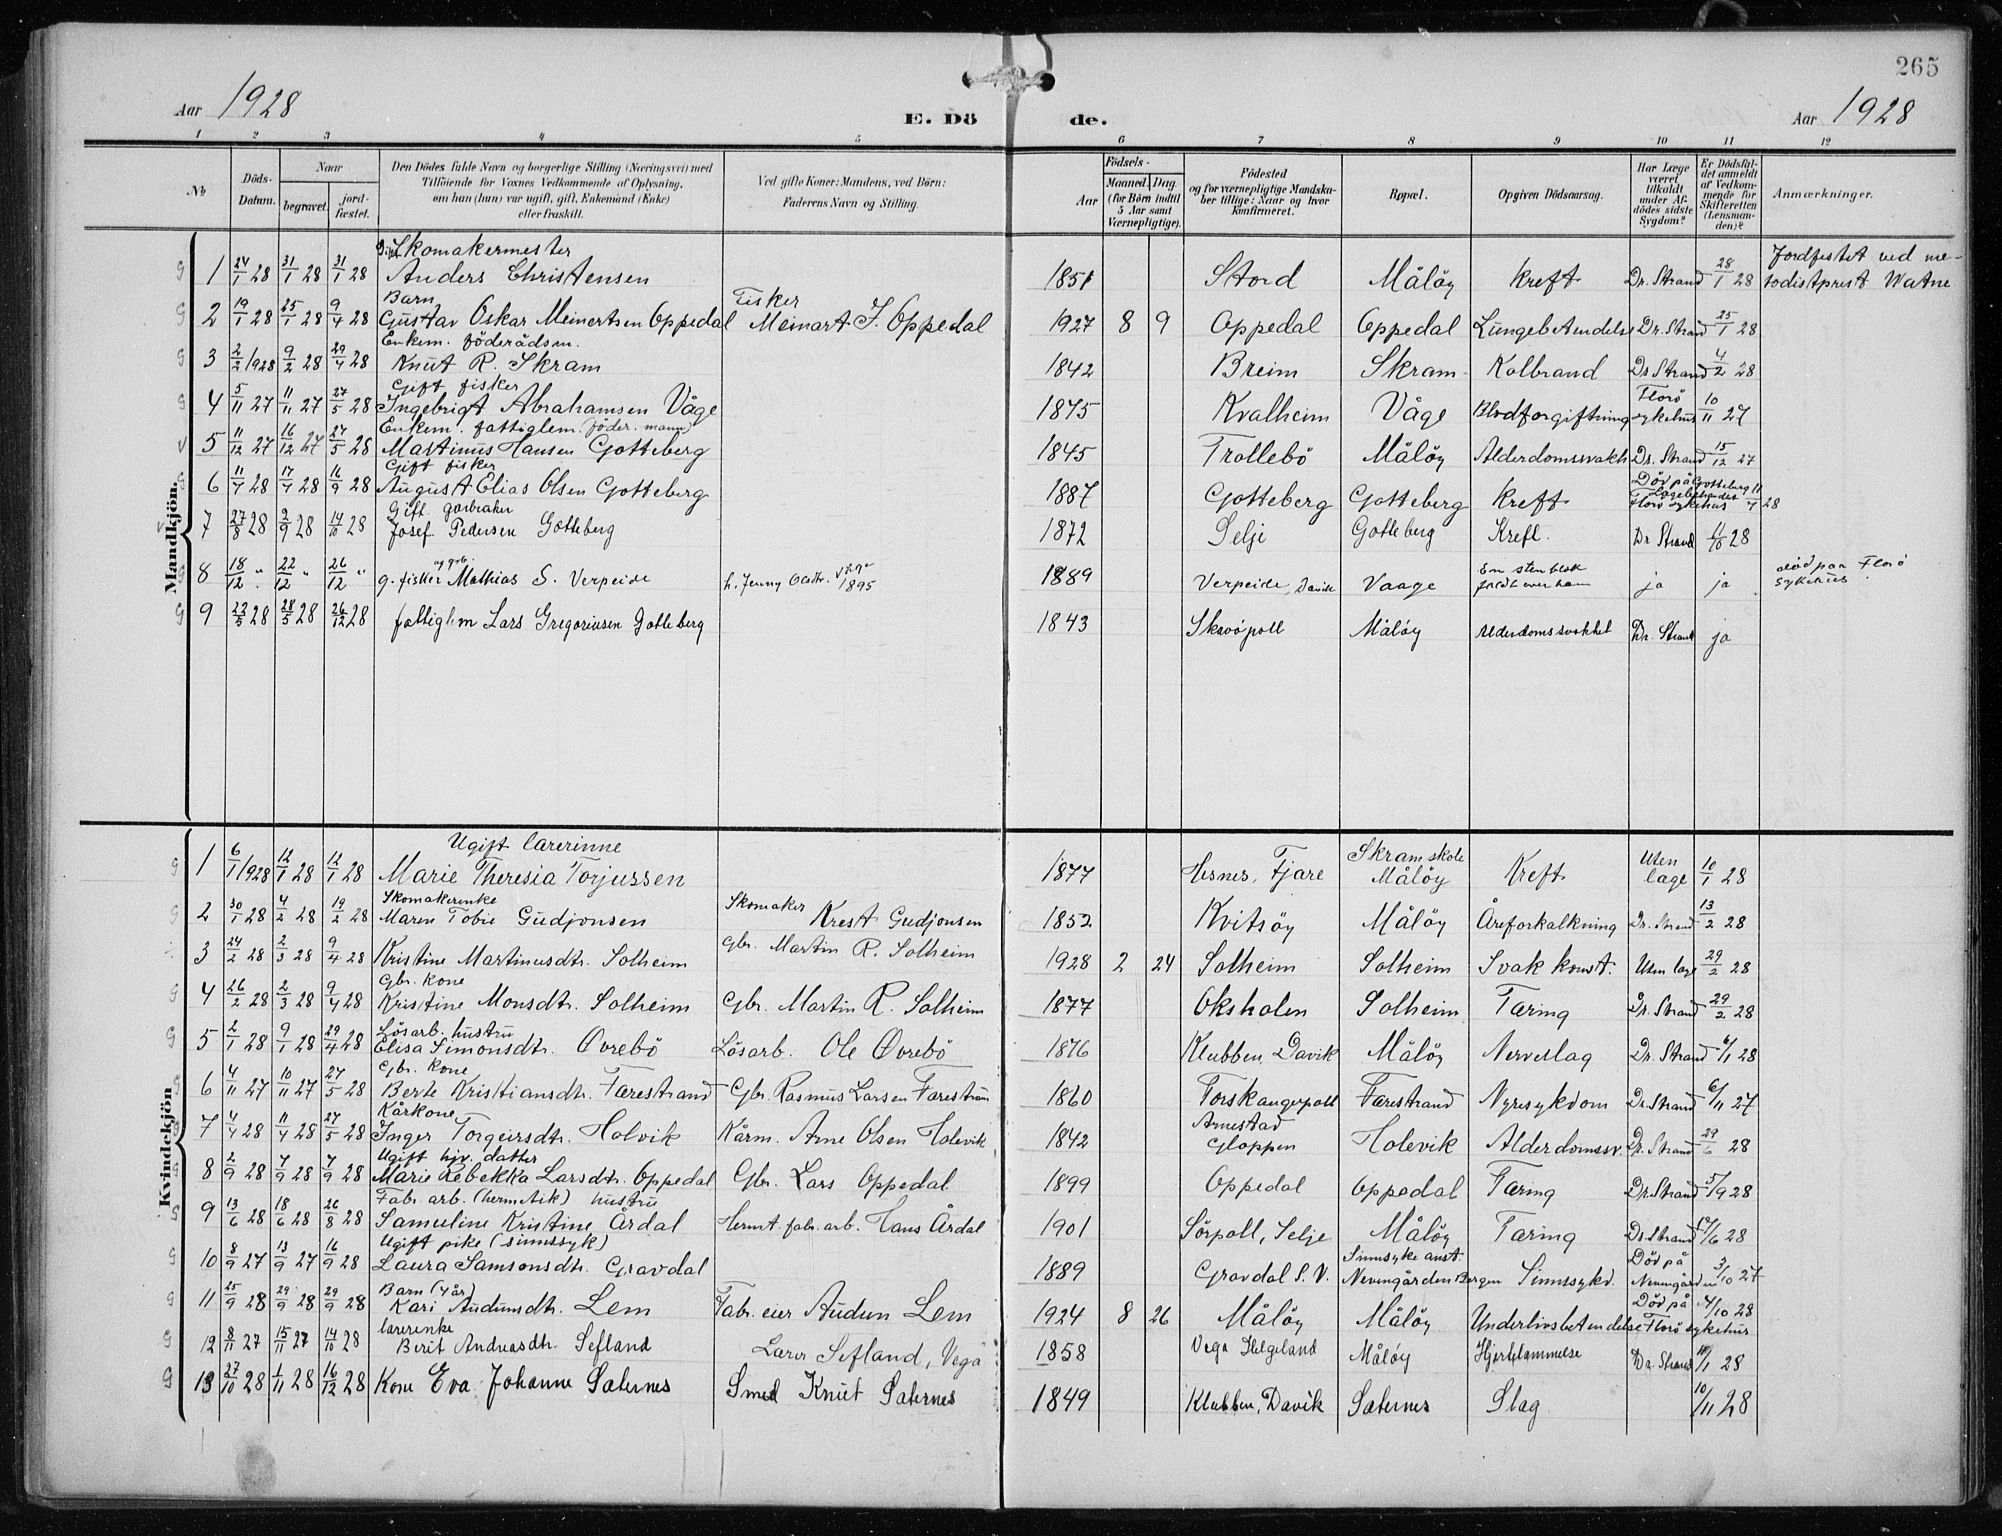 265
Aar 1928
E. Dö de.
Aar 1928
1 2 3 4 5 6 7 8 9 10 11 12
No
Döds-Datum.
Naar
begravet.
jord-fæstet.
Den Dödes fulde Navn og borgerlige Stilling (Næringsvei) med
Tilföiende for Voxnes Vedkommende af Oplysning,
om han (hun) var ugift, gift, Enkemand (Enke)
eller fraskilt.
Ved gifte Koner: Mandens, ved Börn:
Faderens Navn og Stilling.
Födsels-
Aar
Maaned. Dag.
(for Börn indtil
5 Aar samt
Værnepligtige).
Födested
og for værnepligtige Mandska-
ber tillige: Naar og hvor
konfirmeret.
Bopæl.
Opgiven Dödsaarsag.
Har Læge
været
tilkaldt
under Af-
dödes sidste
Sygdom?
Er Dödsfal-
det anmeldt
af Vedkom-
mende for
Skifteretten
(Lensman-
den)?
Anmærkninger.
Mandkjön.
Gift Skomakermester
1 24/1 28 31/1 28 31/1 28 Anders Christensen 1851 Stord Måløy Kreft Dr. Strand 28/1 28 Jordfestet ved me-
todistprest Watne
Barn Fisker
2 19/1 28 25/1 28 9/4 28 Gustav Oskar Meinertsen Oppedal Meinart J. Oppedal 1927 8 9 Oppedal Oppedal Lungebetendelse Dr. Strand 25/1 28
Enkem. föderådsm.
3 2/2 1928 9/2 28 29/4 28 Knut R. Skram 1842 Breim Skram Kolbrand Dr. Strand 4/2 28
Gift fisker
4 5/11 27 11/11 27 27/5 28 Ingebrigt Abrahamsen Våge 1875 Kvalheim Våge Blodforgiftning Florö sykehus 10/11 27
Enkem. fattiglem (föder. mann)
5 11/12 27 16/12 27 27/5 28 Martinus Hansen Gotteberg 1845 Trollebö Måløy Alderdomssvakh Dr. Strand 15/12 27
Gift fisker
6 11/7 28 17/7 28 16/9 28 August Elias Olsen Gotteberg 1887 Gotteberg Gotteberg Kreft Död på Gotteberg Florö sykehus 11/7 28
Gift. gårbruker
7 27/8 28 2/9 28 14/10 28 Josef Pedersen Gotteberg 1872 Selje Gotteberg Kreft. Dr Strand 28
8 18/12 " 22/12 " 26/12 " g. fisker og grb. Mathias S. Verpeide h. Jenny 1895 1889 Verpeide, Davik Vaage En stenblok faldt over ham ja ja död paa Florö
sykehus.
9 22/5 28 28/5 28 26/12 28 fattiglem Lars Gregoriusen Gotteberg 1843 Skavöpoll Måløy Alderdomssvakhet Dr. Strand ja
Kvindekjön
Ugift lærerinne
1 6/1 1928 12/1 28 12/1 28 Marie Theresia Torjussen 1877 Hesnes, Fjære Skram skole Måløy Kreft Uten læge 10/1 28
Skomakerenke
2 30/1 28 4/2 28 19/2 28 Maren Tobie Gudjonsen Skomaker Krest Gudjonsen 1852 Kvitsøy Måløy Åreforkalkning Dr. Strand 13/2 28
3 24/2 28 2/3 28 9/4 28 Kristine Martinusdtr. Solheim Gbr. Martin R. Solheim 1928 2 24 Solheim Solheim Svak konst. Uten læge 29/2 28
Gbr. kone
4 26/2 28 2/3 28 9/4 28 Kristine Monsdtr. Solheim Gbr. Martin R. Solheim 1877 Oksholen Solheim Tæring Dr. Strand 29/2 28
Lösarb. hustru
5 2/1 28 9/1 28 29/4 28 Elisa Simonsdtr. Övrebö Lösarb. Ole Övrebö 1876 Klubben, Davik Måløy Nerveslag Dr. Strand 6/1 28
Gbr. kone
6 4/11 27 10/11 27 27/5 28 Berte Kristiansdtr. Færestrand Gbr. Rasmus Larsen Færestrand 1860 Torskangerpoll Færestrand Nyresykdom Dr. Strand 6/11 27
Kårkone
7 4/4 28 11/4 28 27/5 28 Inger Torgeirsdtr. Holvik Kårm. Arne Olsen Holevik 1842 Arnestad Gloppen Holevik Alderdomssv. Dr. Strand 29/6 28
Ugift hjv. datter
8 2/9 28 7/9 28 7/9 28 Marie Rebekka Larsdtr. Oppedal Gbr. Lars Oppedal 1899 Oppedal Oppedal Tæring Dr. Strand 5/9 28
Fabr. arb. (hermetik) hustru
9 13/6 28 18/6 28 26/8 28 Samuline Kristine Årdal Hermt. fabr. arb. Hans Årdal 1901 Sörpoll, Selje Måløy Tæring Dr. Strand 28
Ugift pike (sinnssyk)
10 8/9 27 13/9 27 16/9 28 Laura Samsonsdtr. Gravdal 1889 Gravdal S. V. Sinnsyke anst. Nevengården Bergen Sinnssykd. Död på Nevengården 3/10 27
Barn (4 år)
11 25/9 28 29/9 28 29/9 28 Kari Audunsdtr. Lem Fabr. eier Audun Lem 1924 8 26 Måløy Måløy Underlivsbetendelse Död på Florö sykehus 4/10 28
lærerenke
12 8/11 27 15/11 27 14/10 28 Berit Andreasdtr. Sefland Lærer Sefland, Vega 1858 Vega Helgeland Måløy Hjertelammelse Dr. Strand 28
13 27/10 28 1/11 28 16/12 28 Kone Eva Johanne Sæternes Smed Knut Sæternes 1849 Klubben, Davik Sæternes Slag 10/11 28